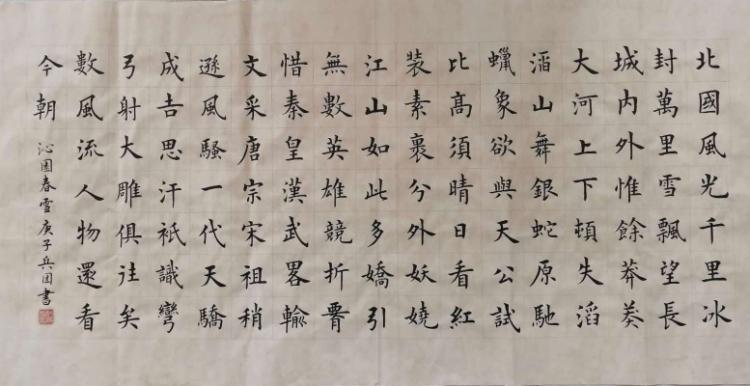 北國風光千里冰
封萬里雪飄望長
城内外惟餘莽莽
大河上下頓失滔
滔山舞銀蛇原馳
蠟象欲與天公試
比髙須晴日看紅
装素裹分外妖嬈
江山如此多嬌引
無數英雄競折
惜秦皇漢武畧輸
文采唐宗宋祖稍
遜風騷一代天驕
成吉思汗祇識彎
弓射大雕俱往矣
數風流人物還看
今朝 沁園春雪庚子兵書